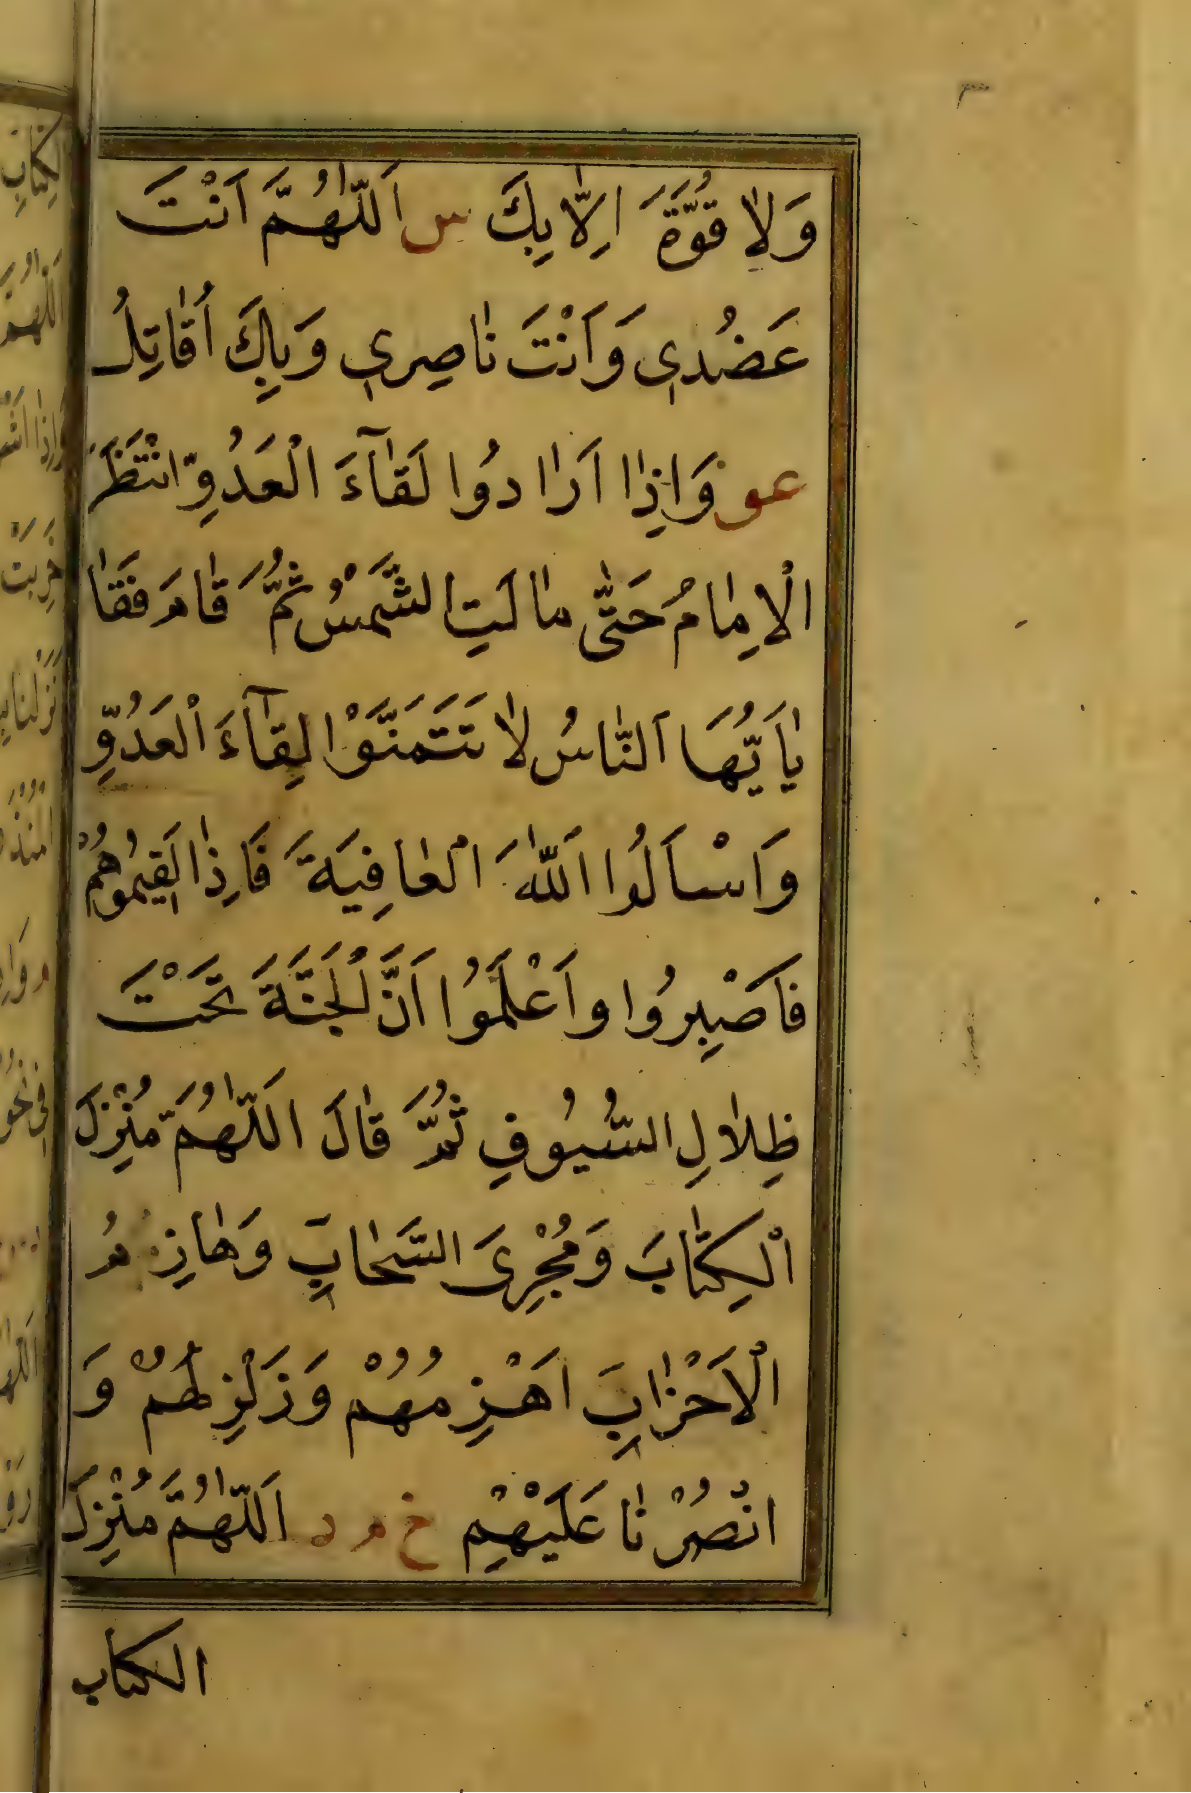 وَلاٰ قُوَّةَ اِلاّٰ بِكَ س اَللّٰهُمَّ اَنْتَ
عَضُدِي وَاَنْتَ نٰاصِرِي وَبِكَ اُقٰاتِلُ
عو وَاِذٰا اَرٰادُوا لَقٰٓاءَ الْعَدُوِّ انْتَظَرَ
الْاِمٰامُ حَتّٰى مٰالَتِ الشَّمْسُ ثُمَّ قٰامَ فَقٰا
يٰاَيُّهَا اَلنّٰاسُ لاٰ تَتَمَنَّوْا لِقٰٓاءَ الْعَدُوِّ
وَاسْاَلُوا اللّٰهَ الْعٰافِيَةَ فَاِذٰا لَقِيتُمُوهُمْ
فَاصْبِرُوا وَاعْلَمُوا اَنَّ الْجَنَّةَ تَحْتَ
ظِلاٰلِ السُّيُوفِ ثُمَّ قٰالَ اَللّٰهُمَّ مُنْزِلَ
الْكِتٰابَ وَمُجْرِىَ السَّحٰابِ وَهٰازِمُ
الْاَحْزٰابِ اَهْزِمْهُمْ وَزَلْزِلْهُمْ وَ
انْصُرْنٰا عَلَيْهِمْ خ م د اَللّٰهُمَّ مُنْزِلَ
الكتاب